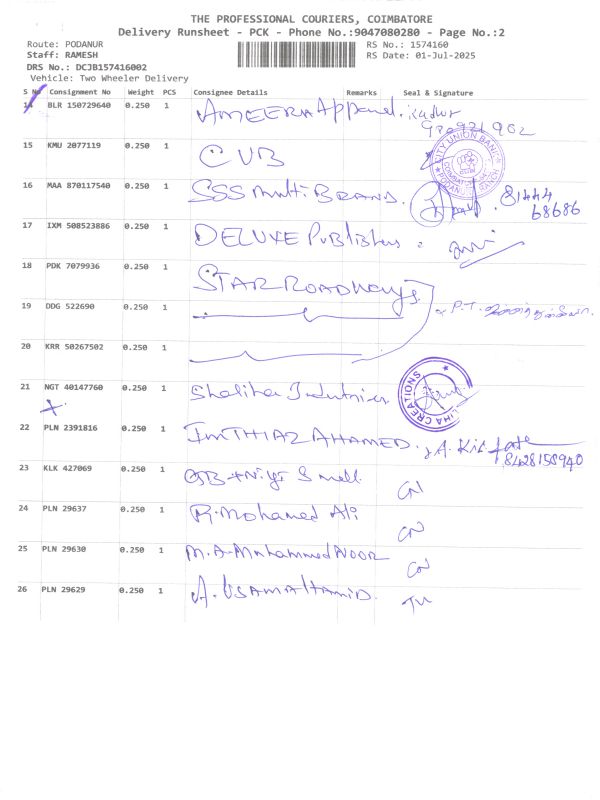 THE PROFESSIONAL COURIERS, COIMBATORE
Delivery Runsheet - PCK - Phone No.:9047080280 - Page No.:2
Route: PODANUR RS No.: 1574160
Staff: RAMESH RS Date: 01-Jul-2025
DRS No.: DCJB157416002
Vehicle: Two Wheeler Delivery
S No Consignment No Weight PCS Consignee Details Remarks Seal & Signature
14 BLR 150729640 0.250 1 AMEERA Apparel.
15 KMU 2077119 0.250 1 CUB CITY UNION BANK
16 MAA 870117540 0.250 1 SSS Multi BRAND. 81444 68686
17 IXM 508523886 0.250 1 DELUXE Publishers.
18 PDK 7079936 0.250 1 STAR ROADWAYS
19 DDG 522690 0.250 1 P.T.
20 KRR 50267502 0.250 1
21 NGT 40147760 0.250 1 Shaliha Industries LIHA CREATIONS
X
22 PLN 2391816 0.250 1 IMTHIAZ AHAMED.
8428158940
23 KLK 427069 0.250 1
24 PLN 29637 0.250 1 R. Mohamed Ali
25 PLN 29630 0.250 1 M.A. Muhammed NOOR
26 PLN 29629 0.250 1 A. USAMA HAMID.